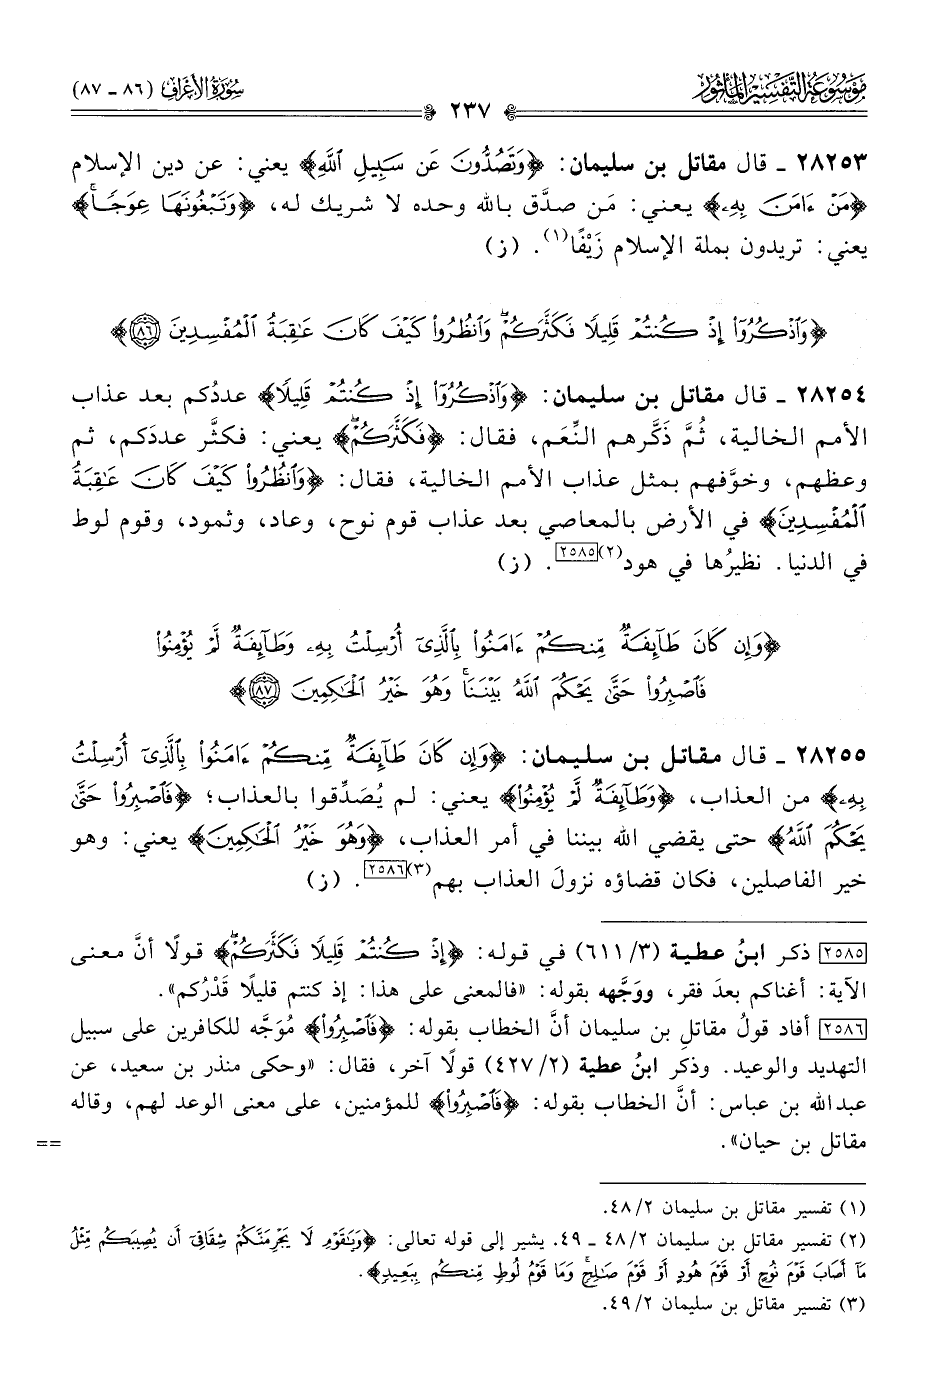 مَوْسُوعَة التَّفْسِير المَأثُور
سُورَةُ الأَعْرَاف (٨٦ - ٨٧)
٢٣٧
٢٨٢٥٣ - قال مقاتل بن سليمان: ﴿وَتَصُدُّونَ عَن سَبِيلِ ٱللَّهِ﴾ يعني: عن دين الإسلام
﴿مَنْ ءَامَنَ بِهِۦ﴾ يعني: مَن صدَّق بالله وحده لا شريك له، ﴿وَتَبْغُونَهَا عِوَجًاۚ﴾
يعني: تريدون بملة الإسلام زَيْفًا(١). (ز)
﴿وَٱذْكُرُوٓا۟ إِذْ كُنتُمْ قَلِيلًا فَكَثَّرَكُمْۖ وَٱنظُرُوا۟ كَيْفَ كَانَ عَـٰقِبَةُ ٱلْمُفْسِدِينَ ٨٦﴾
٢٨٢٥٤ - قال مقاتل بن سليمان: ﴿وَٱذْكُرُوٓا۟ إِذْ كُنتُمْ قَلِيلًا﴾ عددُكم بعد عذاب
الأمم الخالية، ثُمَّ ذَكَّرهم النِّعَم، فقال: ﴿فَكَثَّرَكُمْۖ﴾ يعني: فكثَّر عددَكم، ثم
وعظهم، وخوَّفهم بمثل عذاب الأمم الخالية، فقال: ﴿وَٱنظُرُوا۟ كَيْفَ كَانَ عَـٰقِبَةُ
ٱلْمُفْسِدِينَ﴾ في الأرض بالمعاصي بعد عذاب قوم نوح، وعاد، وثمود، وقوم لوط
في الدنيا. نظيرُها في هود(٢)[٢٥٨٥]. (ز)
﴿وَإِن كَانَ طَآئِفَةٌ مِّنكُمْ ءَامَنُوا۟ بِٱلَّذِىٓ أُرْسِلْتُ بِهِۦ وَطَآئِفَةٌ لَّمْ يُؤْمِنُوا۟
فَٱصْبِرُوا۟ حَتَّىٰ يَحْكُمَ ٱللَّهُ بَيْنَنَاۚ وَهُوَ خَيْرُ ٱلْحَـٰكِمِينَ ٨٧﴾
٢٨٢٥٥ - قال مقاتل بن سليمان: ﴿وَإِن كَانَ طَآئِفَةٌ مِّنكُمْ ءَامَنُوا۟ بِٱلَّذِىٓ أُرْسِلْتُ
بِهِۦ﴾ من العذاب، ﴿وَطَآئِفَةٌ لَّمْ يُؤْمِنُوا۟﴾ يعني: لم يُصَدِّقوا بالعذاب؛ ﴿فَٱصْبِرُوا۟ حَتَّىٰ
يَحْكُمَ ٱللَّهُ﴾ حتى يقضي الله بيننا في أمر العذاب، ﴿وَهُوَ خَيْرُ ٱلْحَـٰكِمِينَ﴾ يعني: وهو
خير الفاصلين، فكان قضاؤه نزولَ العذاب بهم(٣)[٢٥٨٦]. (ز)
[٢٥٨٥] ذكر ابنُ عطية (٣/ ٦١١) في قوله: ﴿إِذْ كُنتُمْ قَلِيلًا فَكَثَّرَكُمْۖ﴾ قولًا أنَّ معنى
الآية: أغناكم بعدَ فقر، ووَجَّهه بقوله: «فالمعنى على هذا: إذ كنتم قليلًا قَدْرُكم».
[٢٥٨٦] أفاد قولُ مقاتلِ بن سليمان أنَّ الخطاب بقوله: ﴿فَٱصْبِرُوا۟﴾ مُوَجَّه للكافرين على سبيل
التهديد والوعيد. وذكر ابنُ عطية (٢/ ٤٢٧) قولًا آخر، فقال: «وحكى منذر بن سعيد، عن
عبدالله بن عباس: أنَّ الخطاب بقوله: ﴿فَٱصْبِرُوا۟﴾ للمؤمنين، على معنى الوعد لهم، وقاله
مقاتل بن حيان». ==
(١) تفسير مقاتل بن سليمان ٢/ ٤٨.
(٢) تفسير مقاتل بن سليمان ٢/ ٤٨ - ٤٩. يشير إلى قوله تعالى: ﴿وَيَـٰقَوْمِ لَا يَجْرِمَنَّكُمْ شِقَاقِىٓ أَن يُصِيبَكُم مِّثْلُ
مَآ أَصَابَ قَوْمَ نُوحٍ أَوْ قَوْمَ هُودٍ أَوْ قَوْمَ صَـٰلِحٍۚ وَمَا قَوْمُ لُوطٍ مِّنكُم بِبَعِيدٍ﴾.
(٣) تفسير مقاتل بن سليمان ٢/ ٤٩.